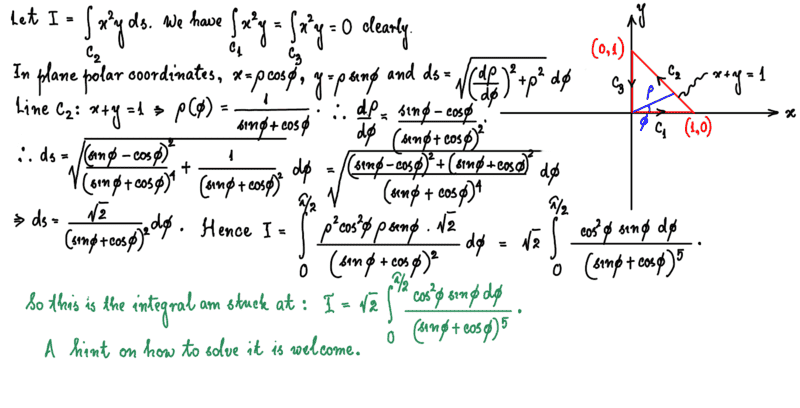 Let I = ∫_{C₂} x²y ds. We have ∫_{C₁} x²y = ∫_{C₃} x²y = 0 clearly.
In plane polar coordinates, x=ρcosϕ, y=ρ sinϕ and ds=√((dρ/dϕ)²+ρ²) dϕ
Line C₂: x+y=1 ⇒ ρ(ϕ) = 1/(sinϕ+cosϕ). ∴ dρ/dϕ = (sinϕ-cosϕ)/(sinϕ+cosϕ)².
∴ ds=√((sinϕ-cosϕ)²/(sinϕ+cosϕ)⁴ + 1/(sinϕ+cosϕ)²) dϕ = √(((sinϕ-cosϕ)²+(sinϕ+cosϕ)²)/(sinϕ+cosϕ)⁴) dϕ
⇒ ds= √2/(sinϕ+cosϕ)² dϕ. Hence I = ∫₀^{π/2} (ρ²cos²ϕ ρ sinϕ . √2)/(sinϕ+cosϕ)² dϕ = √2 ∫₀^{π/2} (cos²ϕ sinϕ dϕ)/(sinϕ+cosϕ)⁵.
So this is the integral am stuck at: I = √2 ∫₀^{π/2} (cos²ϕ sinϕ dϕ)/(sinϕ+cosϕ)⁵.
A hint on how to solve it is welcome.
y
(0,1)
C₂
x+y=1
C₃
ρ
ϕ
x
C₁
(1,0)